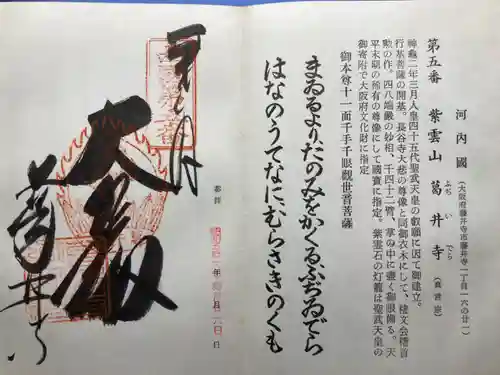 第五番 紫雲山 葛井寺 (真言宗)
ふぢ ゐ でら
河內國 (大阪府藤井寺市藤井寺一丁目一六の廿一)
神龜二年三月人皇四十五代聖武天皇の叡願に因て御建立。
行基菩薩の開基。長谷寺大慈の尊像と同御衣木にして、稽文會稽首
勲の作。四八端嚴の妙相、千四十二臂、掌の中に盡く御眼備る。天
平末期の稀有の尊像にして國寶に指定。紫雲石の灯籠は聖武天皇の
御寄附で大阪府文化財に指定
御本尊十一面千手千眼觀世音菩薩
まゐるよりたのみをかくるふぢゐでら
はなのうてなにむらさきのくも
奉拝
大悲殿
葛井寺